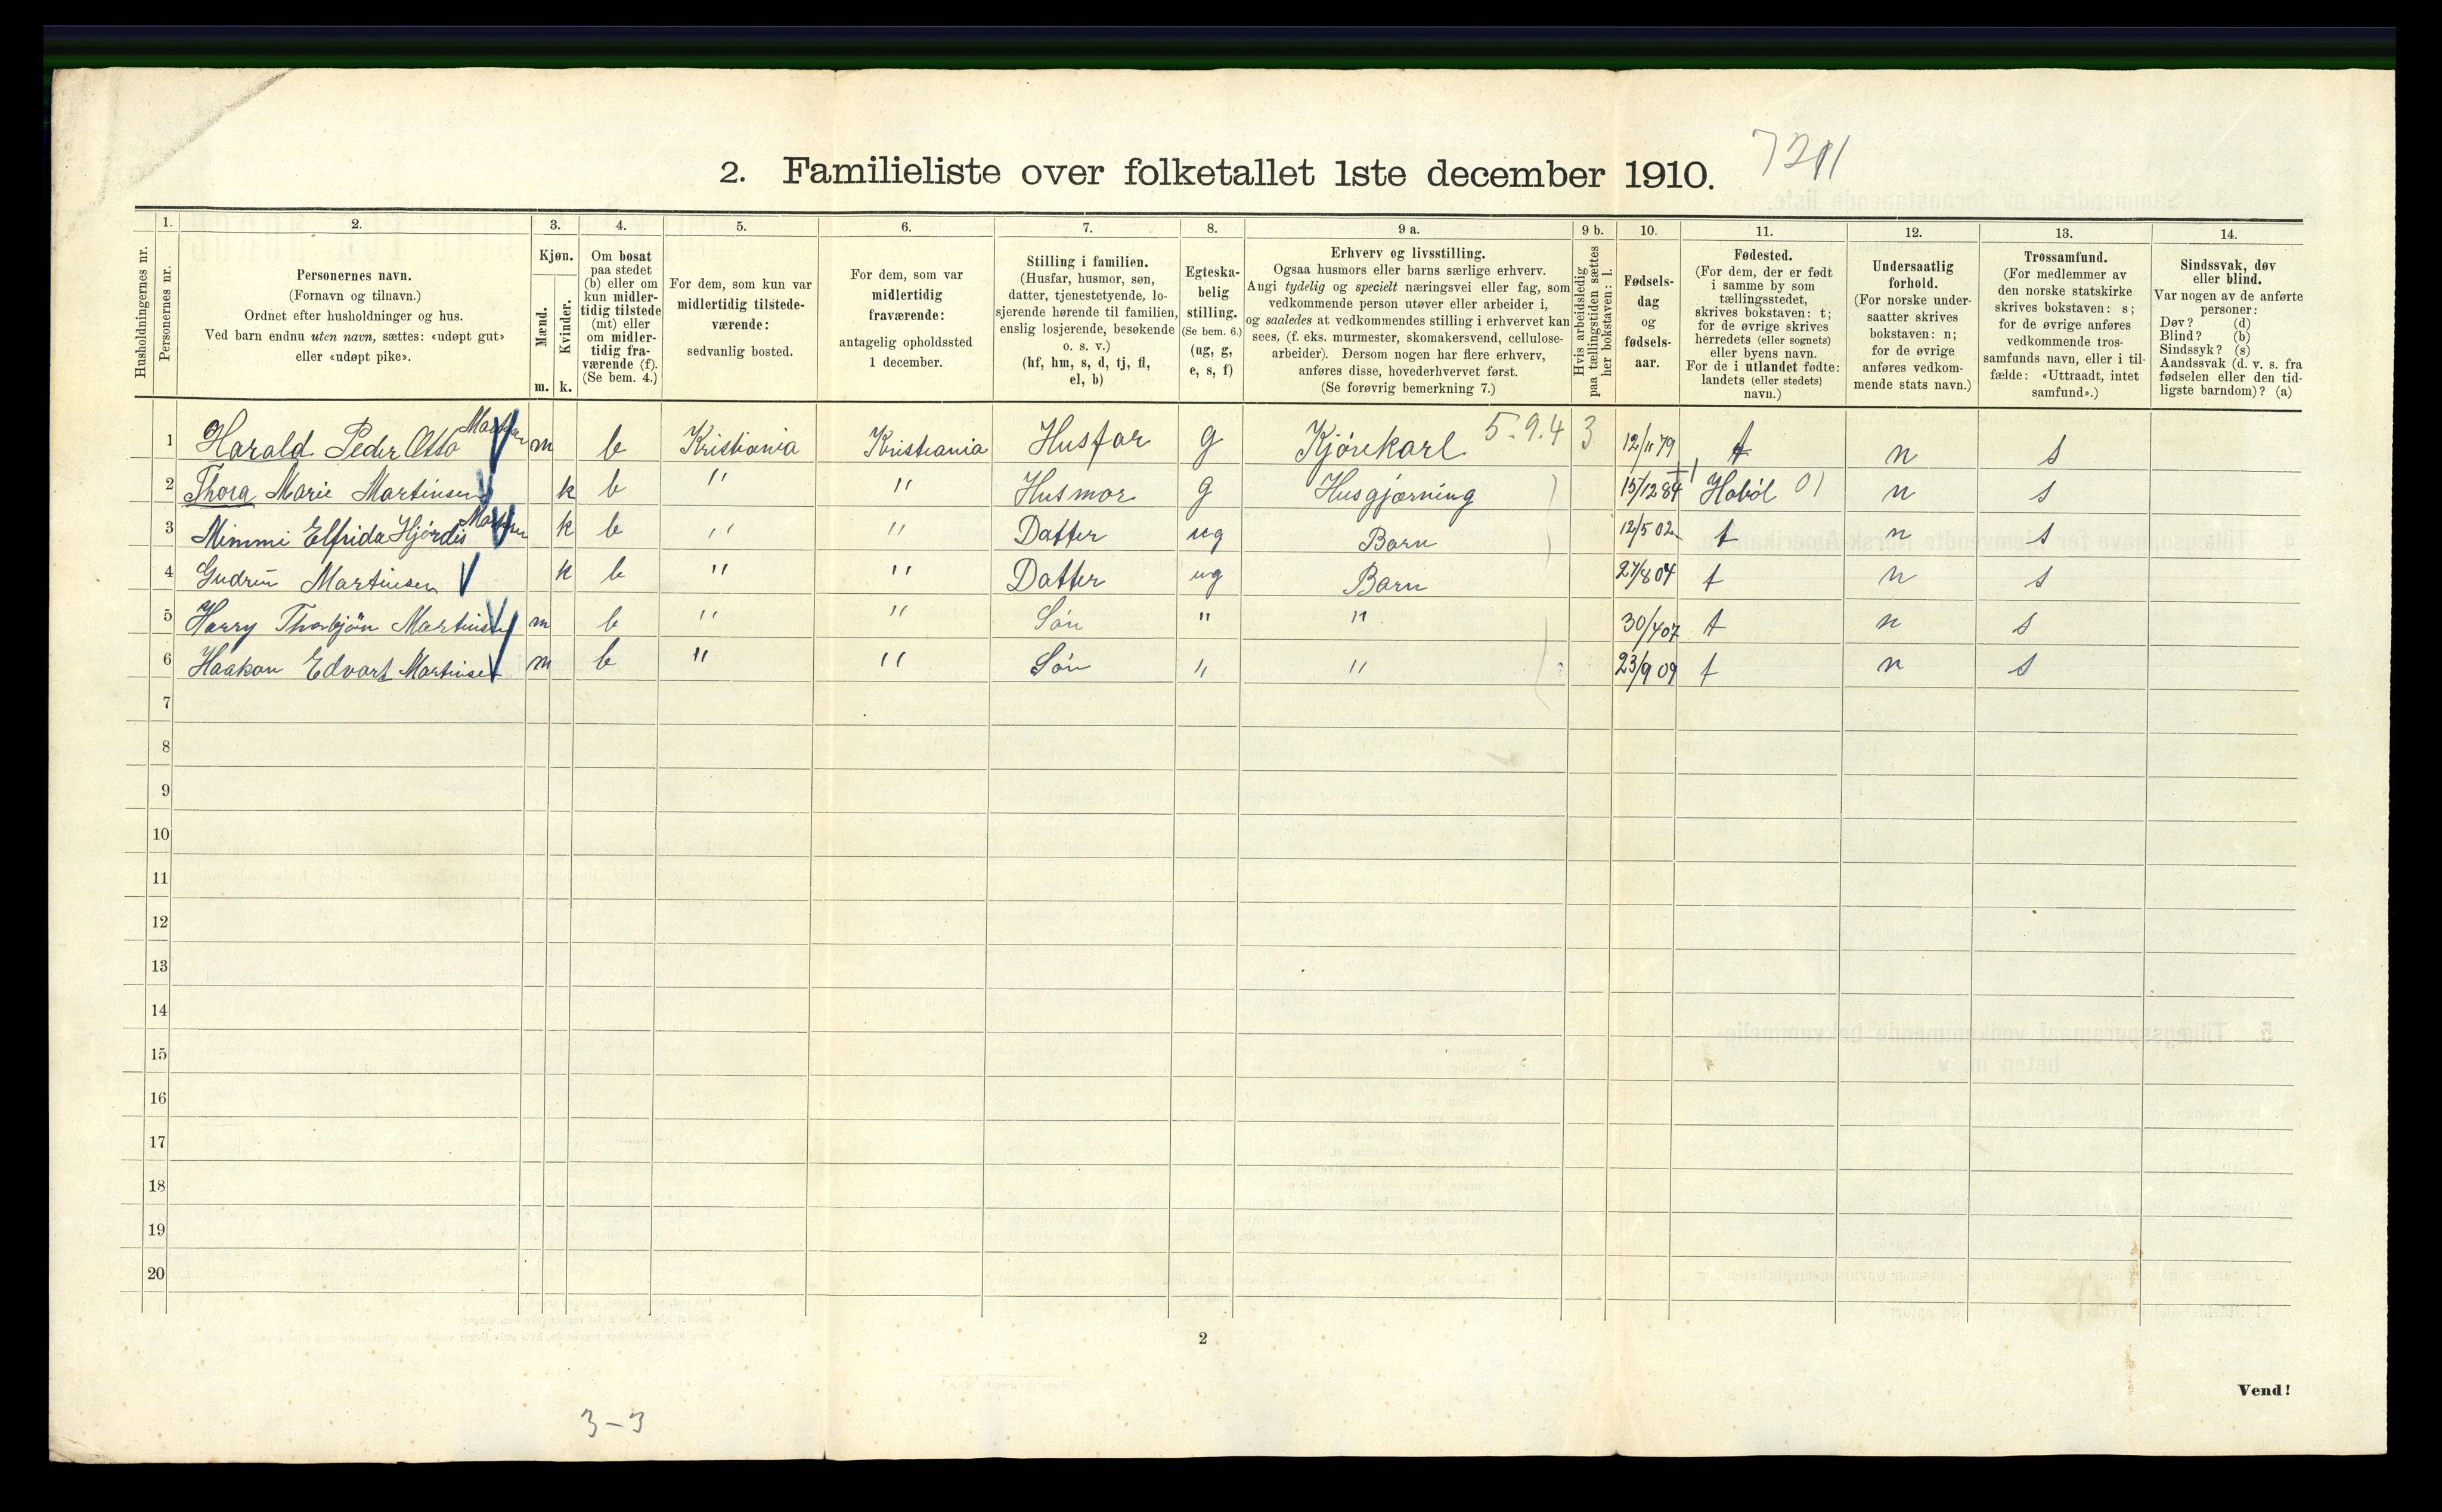 7211
2. Familieliste over folketallet 1ste december 1910.
Husholdningernes nr.
1. Personernes nr.
2. Personernes navn. (Fornavn og tilnavn.) Ordnet efter husholdninger og hus. Ved barn endnu uten navn, sættes: «udøpt gut» eller «udøpt pike».
3. Kjøn. Mænd. m. Kvinder. k.
4. Om bosat paa stedet (b) eller om kun midlertidig tilstede (mt) eller om midlertidig fraværende (f). (Se bem. 4.)
5. For dem, som kun var midlertidig tilstedeværende: sedvanlig bosted.
6. For dem, som var midlertidig fraværende: antagelig opholdssted 1 december.
7. Stilling i familien. (Husfar, husmor, søn, datter, tjenestetyende, losjerende hørende til familien, enslig losjerende, besøkende o. s. v.) (hf, hm, s, d, tj, fl, el, b)
8. Egteskabelig stilling. (Se bem. 6.) (ug, g, e, s, f)
9 a. Erhverv og livsstilling. Ogsaa husmors eller barns særlige erhverv. Angi tydelig og specielt næringsvei eller fag, som vedkommende person utøver eller arbeider i, og saaledes at vedkommendes stilling i erhvervet kan sees, (f. eks. murmester, skomakersvend, cellulosearbeider). Dersom nogen har flere erhverv, anføres disse, hovederhvervet først. (Se forøvrig bemerkning 7.)
9 b. Hvis arbeidsledig paa tællingstiden sættes her bokstaven: l.
10. Fødselsdag og fødselsaar.
11. Fødested. (For dem, der er født i samme by som tællingsstedet, skrives bokstaven: t; for de øvrige skrives herredets (eller sognets) eller byens navn. For de i utlandet fødte: landets (eller stedets) navn.)
12. Undersaatlig forhold. (For norske undersaatter skrives bokstaven: n; for de øvrige anføres vedkommende stats navn.)
13. Trossamfund. (For medlemmer av den norske statskirke skrives bokstaven: s; for de øvrige anføres vedkommende trossamfunds navn, eller i tilfælde: «Uttraadt, intet samfund».)
14. Sindssvak, døv eller blind. Var nogen av de anførte personer: Døv? (d) Blind? (b) Sindssyk? (s) Aandssvak (d. v. s. fra fødselen eller den tidligste barndom)? (a)
1 Harald Peder Otto Martinsen m b Kristiania Kristiania Husfar g Kjørekarl 5.9.4 3 12/11 79 t n s
2 Thora Marie Martinsen k b " " Husmor g Husgjærning 15/12 84 Hobøl 01 n s
3 Mimmi Elfrida Hjørdis Martinsen k b " " Datter ug Barn 12/5 02 t n s
4 Gudrun Martinsen k b " " Datter ug Barn 27/8 04 t n s
5 Harry Thorbjøn Martinsen m b " " Søn " " 30/4 07 t n s
6 Haakon Edvart Martinsen m b " " Søn " " 23/9 09 t n s
7
8
9
10
11
12
13
14
15
16
17
18
19
20
2
Vend!
3-3